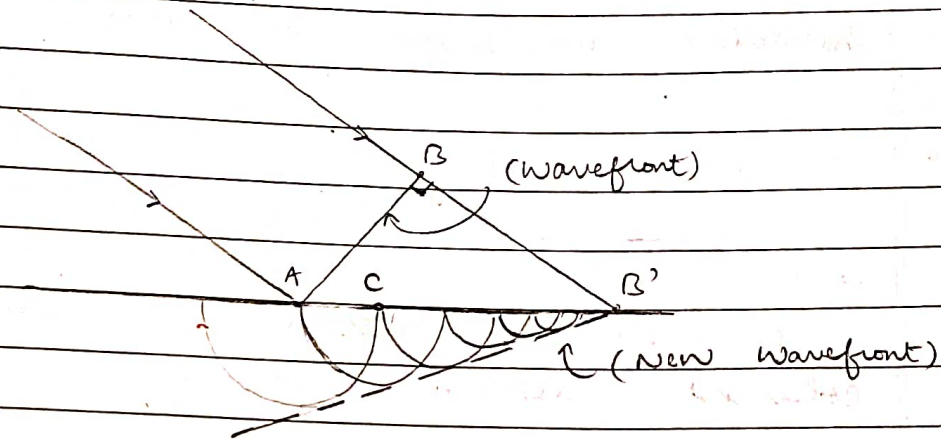 B (Wavefront)
A C B'
(New Wavefront)